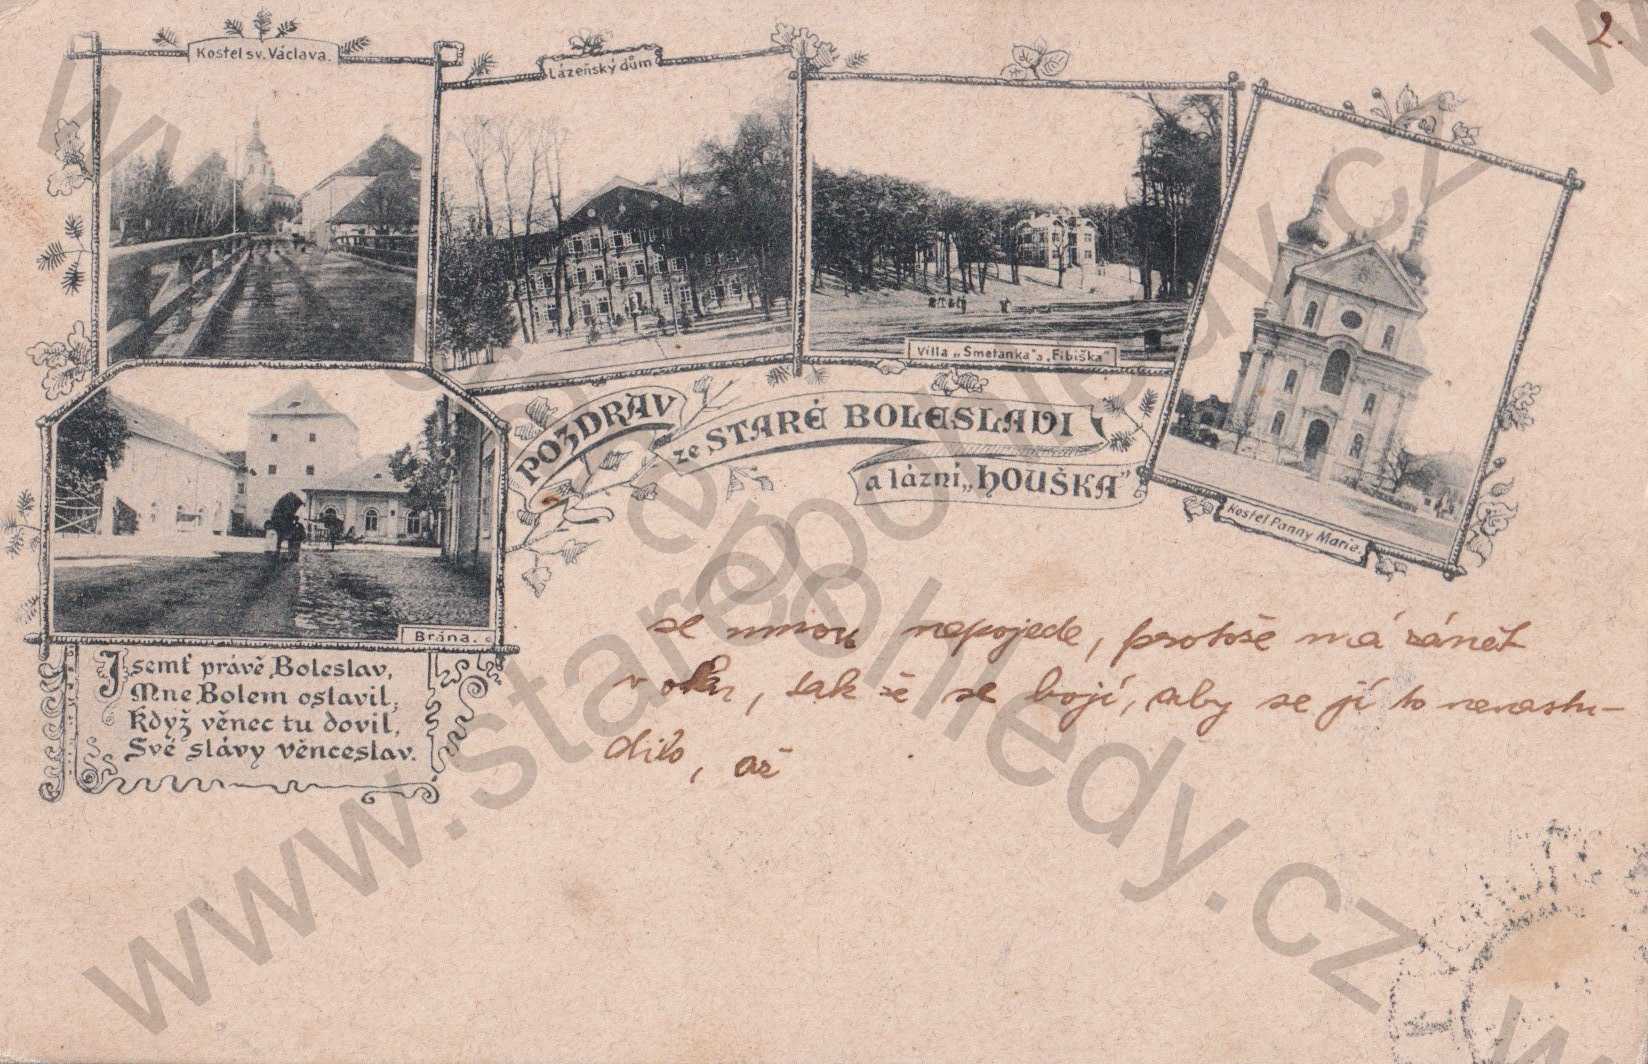 2.
Kostel sv. Václava.
Lázeňský dům
Villa „Smetanka" a „Fibiška"
Kostel Panny Marie.
Brána.
POZDRAV
ze STARÉ BOLESLAVI
a lázní „HOUŠKA"
Jsemť právě Boleslav,
Mne Bolem oslavil,
Když věnec tu dovil,
Své slávy věnceslav.
se mnou nepojede, protože má zánět
v oku, tak že se bojí, aby se jí to nenastu-
dilo, až
www.starepohledy.cz
www.starepohledy.cz